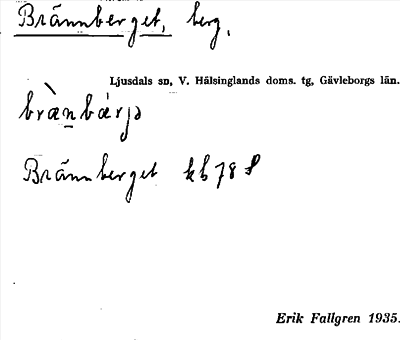 Brännberget, berg.
Ljusdals sn, V. Hälsinglands doms. tg, Gävleborgs län.
Brännberget kb 78
Erik Fallgren 1935.